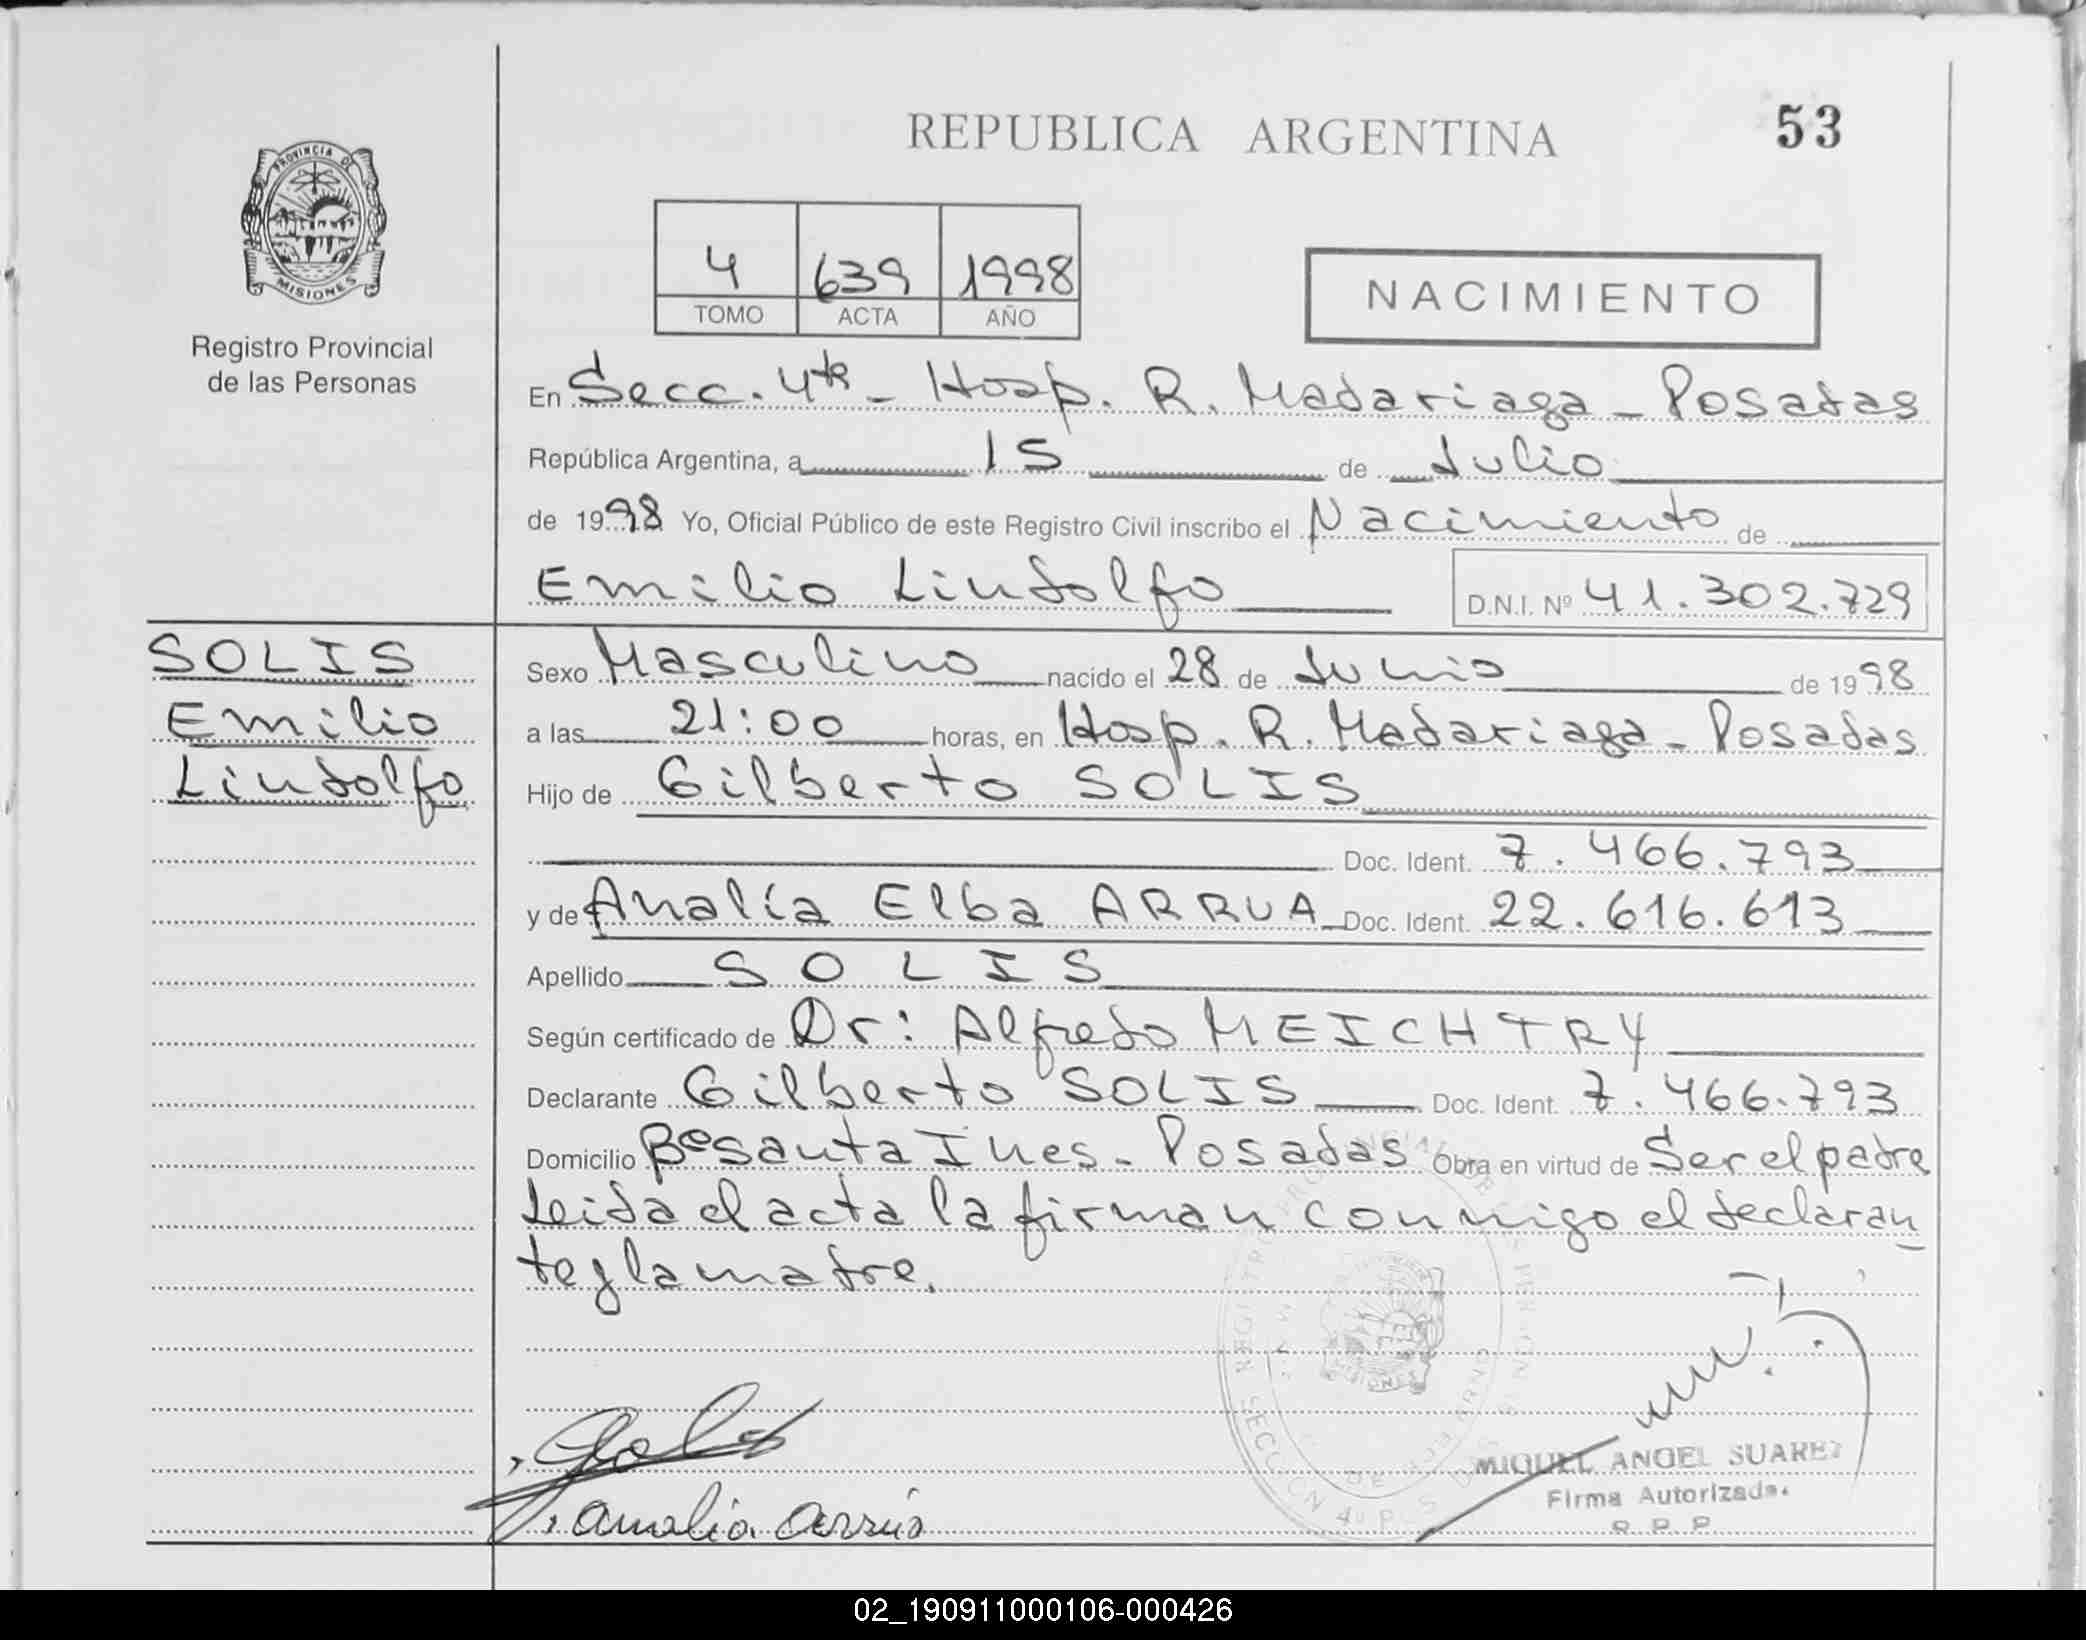 REPUBLICA ARGENTINA
53
PROVINCIA DE
MISIONES
Registro Provincial
de las Personas
4 639 1998
TOMO ACTA AÑO
NACIMIENTO
En Secc. 4ta - Hosp. R. Madariaga - Posadas
República Argentina, a 15 de Julio
de 1998 Yo, Oficial Público de este Registro Civil inscribo el Nacimiento de
Emilio Lindolfo D.N.I. Nº 41.302.729
SOLIS
Emilio
Lindolfo
Sexo Masculino nacido el 28 de Junio de 1998
a las 21:00 horas, en Hosp. R. Madariaga - Posadas
Hijo de Gilberto SOLIS
Doc. Ident. 7.466.793
y de Analía Elba ARRUA Doc. Ident. 22.616.613
Apellido SOLIS
Según certificado de Dr: Alfredo MEICHTRY
Declarante Gilberto SOLIS Doc. Ident. 7.466.793
Domicilio Bº Santa Ines - Posadas Obra en virtud de Ser el padre
Leida el acta la firman conmigo el declaran
te y la madre.
Analia Arrúa
MIGUEL ANGEL SUAREZ
Firma Autorizada
R. P. P.
02_190911000106-000426